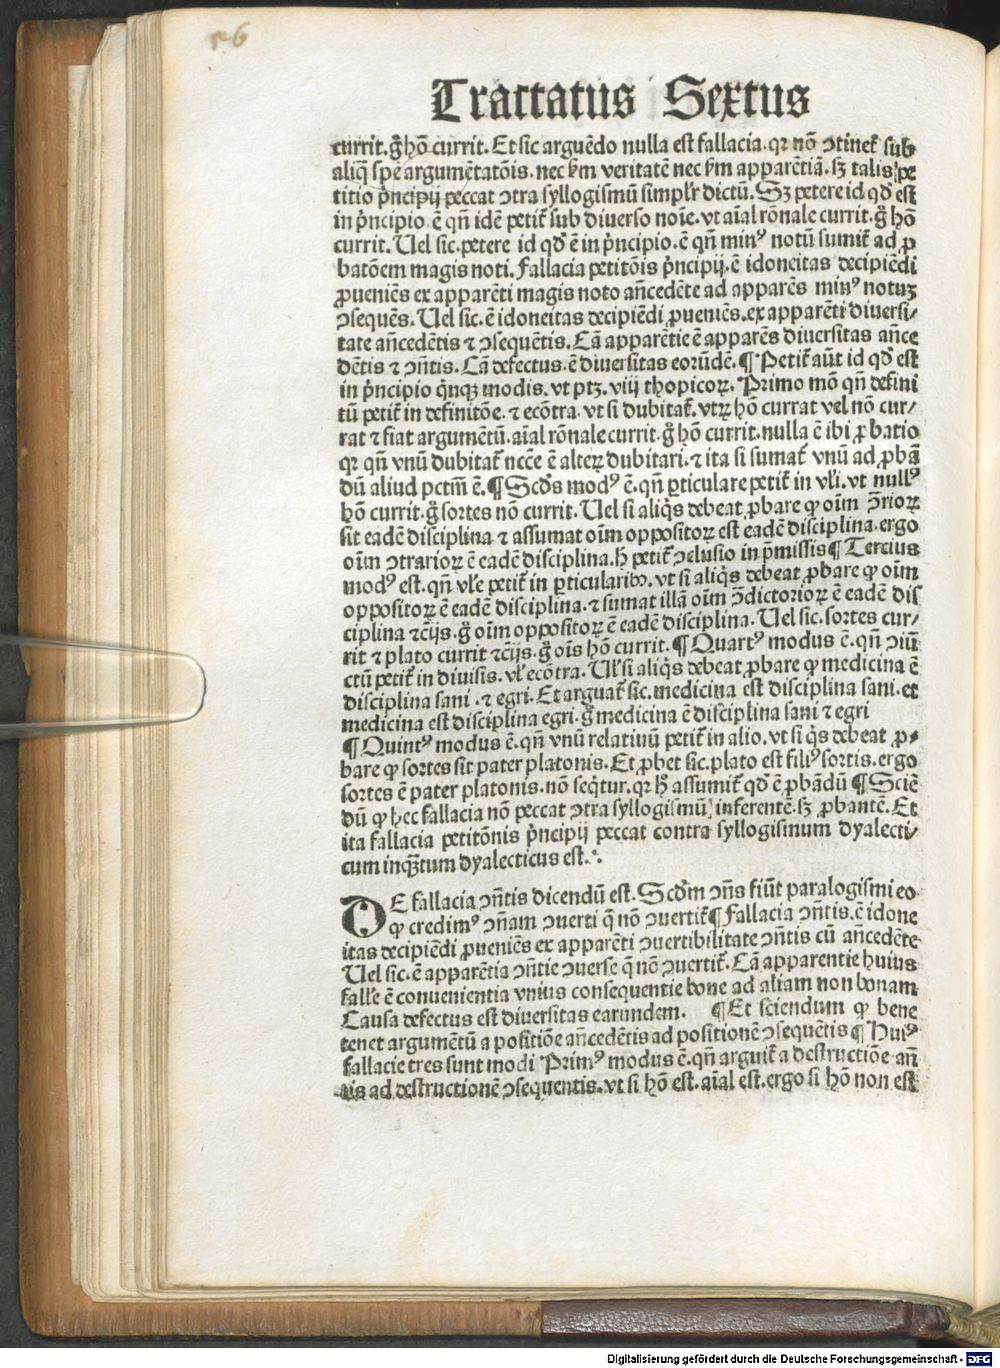 Tractatus Sextus
currit. g̊ hō currit. Et sic arguēdo nulla est fallacia. qꝛ nō ↄtinet̄ sub
aliq̄ spē argumētatōis. nec ẜm veritatē nec ẜm apparētiā. sꝫ talis pe
titio p̄ncipij peccat ↄtra syllogismū simplr̄ dictū. Sꝫ petere id qd̄ est
in p̄ncipio. ē qn̄ idē petit̄ sub diuerso noīe. vt aīal rōnale currit. g̊ hō
currit. Uel sic. petere id qd̄ ē in p̄ncipio. ē qn̄ minꝰ notū sumit̄ ad ꝓ
batōem magis noti. Fallacia petitōis p̄ncipij. ē idoneitas decipiēdi
ꝓueniēs ex apparēti magis noto an̄cedēte ad apparēs minꝰ notuꝫ
ↄsequēs. Uel sic. ē idoneitas decipiēdi ꝓueniēs. ex apparēti diuersi/
tate an̄cedētis ⁊ ↄsequētis. Cā apparētie ē apparēs diuersitas an̄ce
dētis ⁊ ↄn̄tis. Cā defectus. ē diuersitas eorūdē. ¶ Petit̄ aūt id qd̄ est
in p̄ncipio q̄nqꝫ modis. vt ptꝫ. viij thopicoꝝ. Primo mō qn̄ defini
tū petit̄ in definitōe. ⁊ ecōtra. vt si dubitat̄. vtꝝ hō currat vel nō cur/
rat ⁊ fiat argumētū. aīal rōnale currit. g̊ hō currit. nulla ē ibi ꝓbatio
qꝛ qn̄ vnū dubitat̄ nccē ē alterꝝ dubitari. ⁊ ita si sumat̄ vnū ad ꝓbā
dū aliud pctm̄ ē. ¶ Scd̄s modꝰ ē. qn̄ ꝑticulare petit̄ in vl̄i. vt nullꝰ
hō currit. g̊ sortes nō currit. Uel si aliq̄s debeat ꝓbare ꝙ oīm ↄ̄rioꝝ
sit eadē disciplina ⁊ assumat oīm oppositoꝝ est eadē disciplina. ergo
oīm ↄtrarioꝝ ē eadē disciplina. h̄ petit̄ ↄclusio in p̄missis ¶ Tercius
modꝰ est. qn̄ vl̄e petit̄ in ꝑticularibꝫ. vt si aliq̄s debeat ꝓbare ꝙ oīm
oppositoꝝ ē eadē disciplina. ⁊ sumat illā oīm ↄ̄dictorioꝝ ē eadē dis
ciplina ⁊cēijs. g̊ oīm oppositoꝝ ē eadē disciplina. Uel sic. sortes cur/
rit ⁊ plato currit ⁊cēijs. g̊ oīs hō currit. ¶ Quartꝰ modus ē. qn̄ ↄiū
ctū petit̄ in diuisis. vl̄ ecōtra. Ul̄ si aliq̄s debeat ꝓbare ꝙ medicina ē
disciplina sani. ⁊ egri. Et arguat̄ sic. medicina est disciplina sani. et
medicina est disciplina egri. g̊ medicina ē disciplina sani ⁊ egri
¶ Quintꝰ modus ē. qn̄ vnū relatiuū petit̄ in alio. vt si q̄s debeat ꝓ/
bare ꝙ sortes sit pater platonis. Et ꝓbet sic. plato est filiꝰ sortis. ergo
sortes ē pater platonis. nō seq̄tur. qꝛ h̄ assumit̄ qd̄ ē ꝓbādū ¶ Sciē
dū ꝙ hec fallacia nō peccat ↄtra syllogismū inferentē. sꝫ ꝓbantē. Et
ita fallacia petitōnis p̄ncipij peccat contra syllogisinum dyalecti/
cum inqꝫtum dyalecticus est.
DE fallacia ↄn̄tis dicendū est. Scd̄m ↄn̄s fiūt paralogismi eo
ꝙ credimꝰ ↄn̄am ↄuerti q̄ nō ↄuertit̄ ¶ Fallacia ↄn̄tis. ē idone
itas decipiēdi ꝓueniēs ex apparēti ↄuertibilitate ↄn̄tis cū an̄cedēte
Uel sic. ē apparētia ↄn̄tie ↄuerse q̄ nō ↄuertit̄. Cā apparentie huius
fall̄e ē conuenientia vnius consequentie bone ad aliam non bonam
Causa defectus est diuersitas earundem. ¶ Et sciendum ꝙ bene
tenet argumētū a positiōe an̄cedētis ad positionē ↄsequētis ¶ Huiꝰ
fallacie tres sunt modi Primꝰ modus ē. qn̄ arguit̄ a destructiōe an̄
tis ad destructionē ↄsequentis. vt si hō est. aīal est. ergo si hō non est
Digitalisierung gefördert durch die Deutsche Forschungsgemeinschaft - DFG